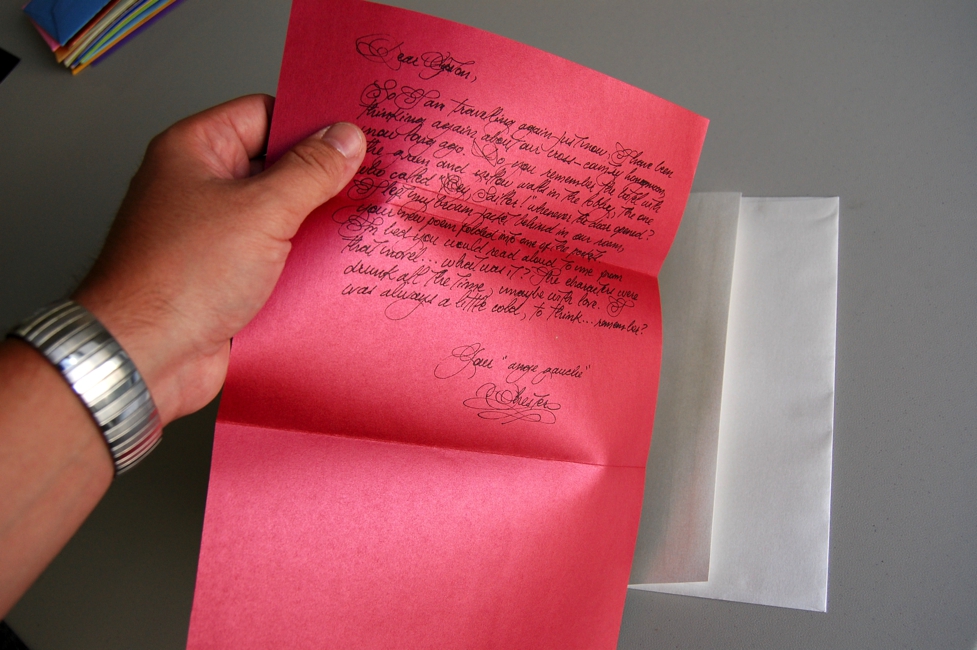 Dear
So I am travelling again just now, I have been
thinking again about our cross-country honeymoon,
now long ago. Do you remember the hotel with
the green and yellow walls in the lobby, the one
who called "Hey, Sailor!" whenever the door opened?
I left my brown jacket behind in our room,
your new poem folded into one of the pockets
In bed you would read aloud to me from
that novel... what was it? The characters were
drunk all the time, maybe with love. I
was always a little cold, to think... remember?
Your "ange gauche"
Chester